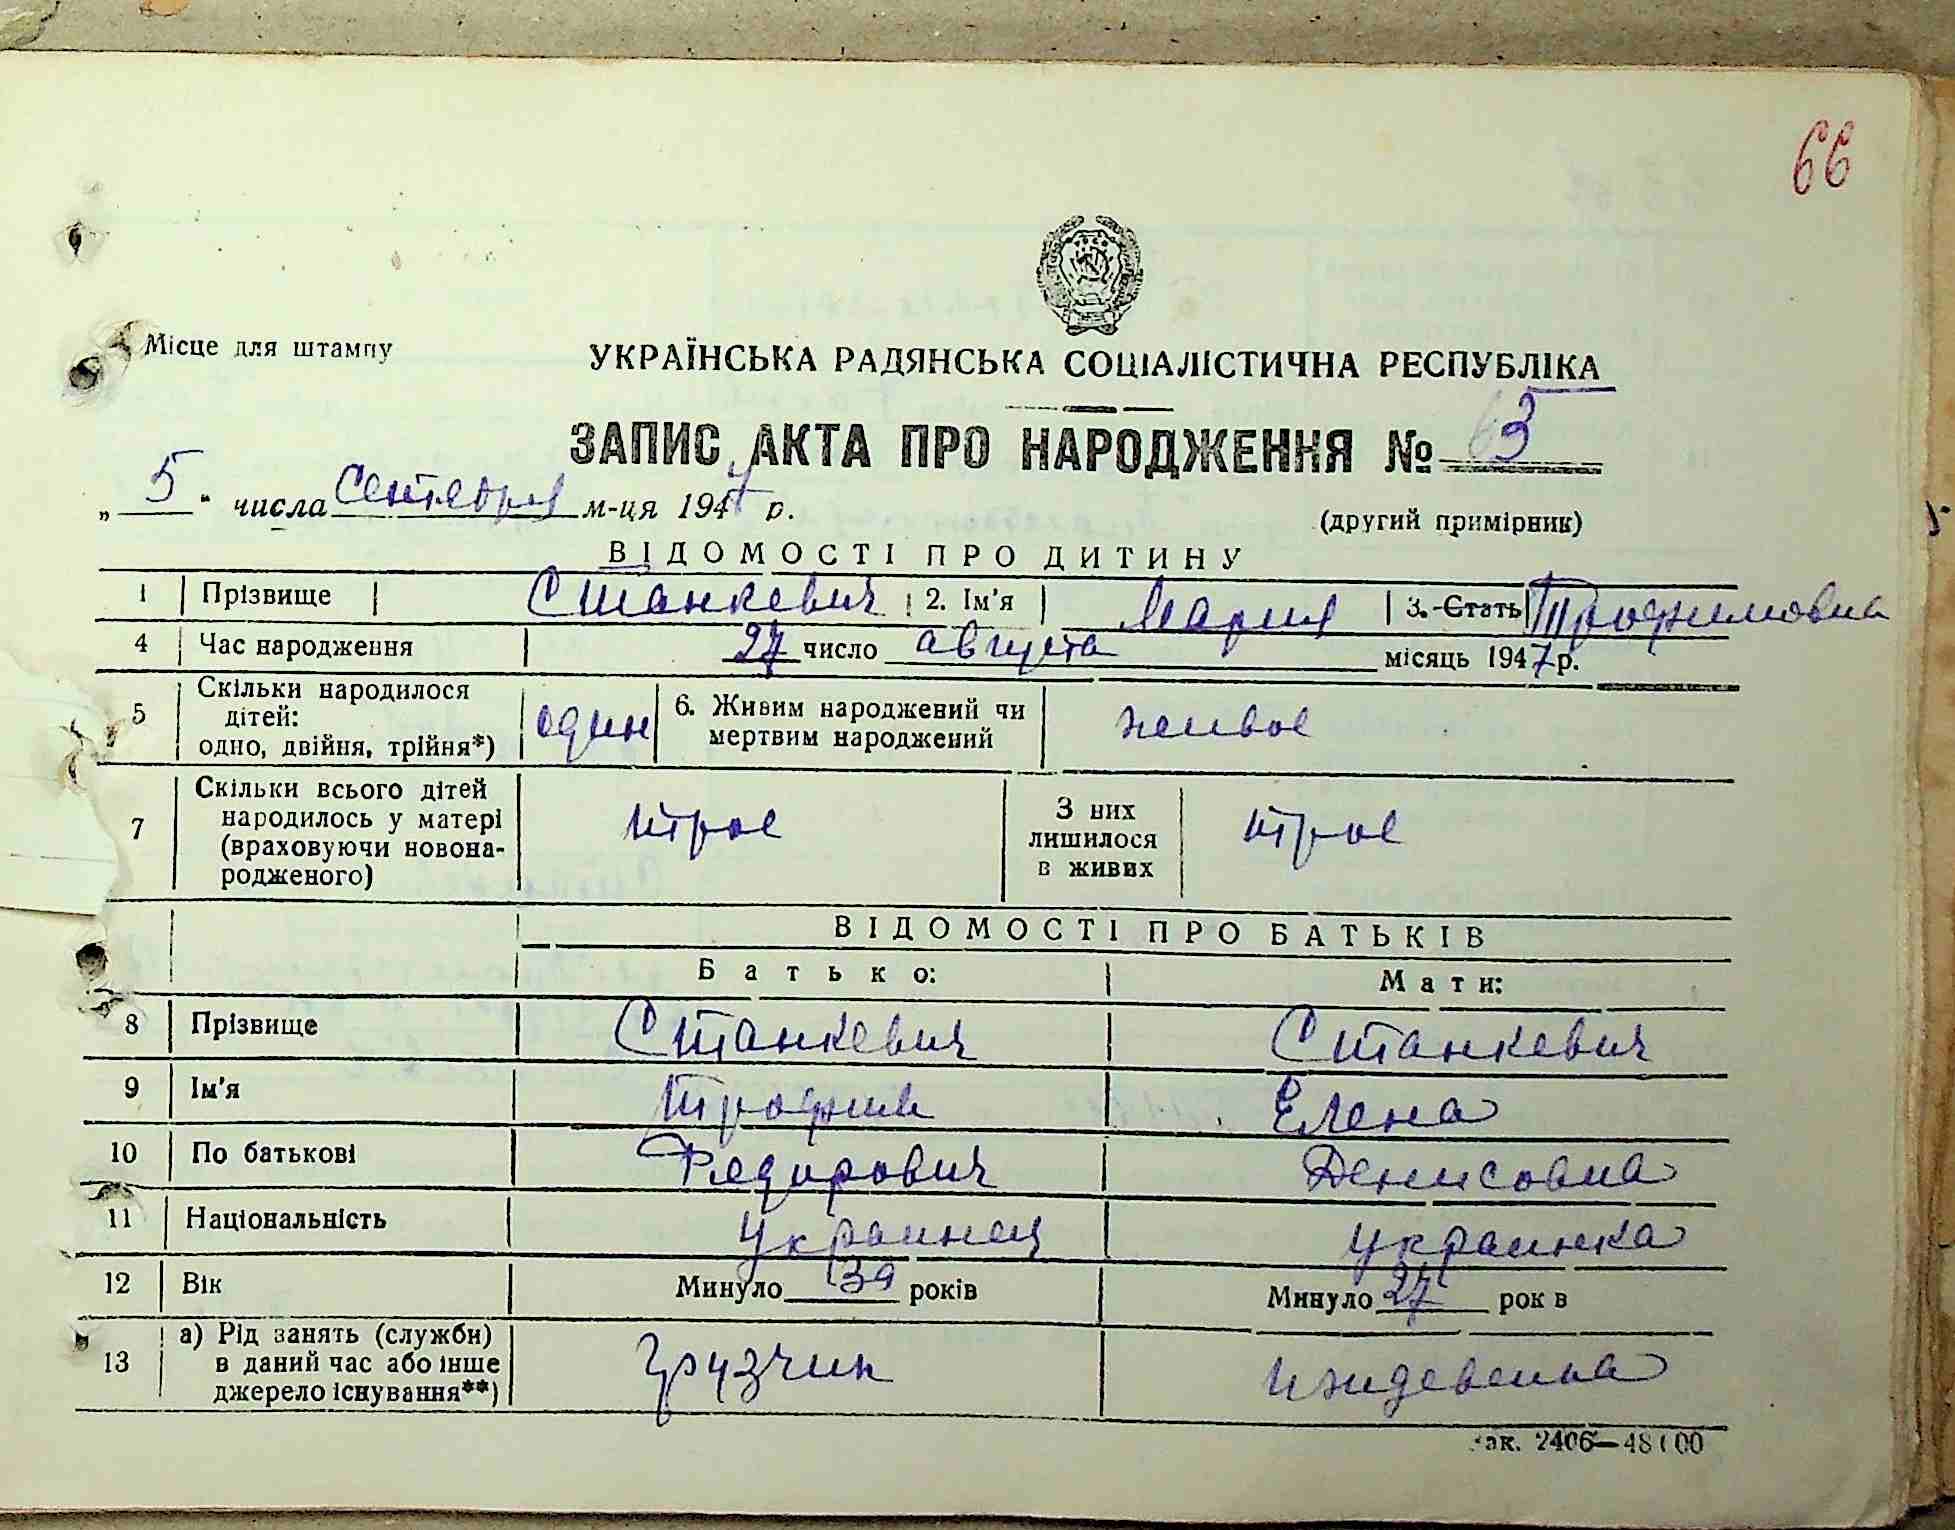 66
Місце для штампу
УКРАЇНСЬКА РАДЯНСЬКА СОЦІАЛІСТИЧНА РЕСПУБЛІКА
ЗАПИС АКТА ПРО НАРОДЖЕННЯ № 63
„ 5 " числа Сентября м-ця 1947 р.
(другий примірник)
ВІДОМОСТІ ПРО ДИТИНУ
1 Прізвище Станкевич 2. Ім'я Мария 3. Стать Трофимовна
4 Час народження 27 число августа місяць 1947 р.
5 Скільки народилося дітей: одно, двійня, трійня*) один 6. Живим народжений чи мертвим народжений живое
7 Скільки всього дітей народилось у матері (враховуючи новонародженого) трое З них лишилося в живих трое
ВІДОМОСТІ ПРО БАТЬКІВ
Батько: Мати:
8 Прізвище Станкевич Станкевич
9 Ім'я Трофим Елена
10 По батькові Федорович Денисовна
11 Національність Украинец Украинка
12 Вік Минуло 39 років Минуло 27 рок в
13 а) Рід занять (служби) в даний час або інше джерело існування**) Грузчик Иждевенка
Зак. 2406—48100